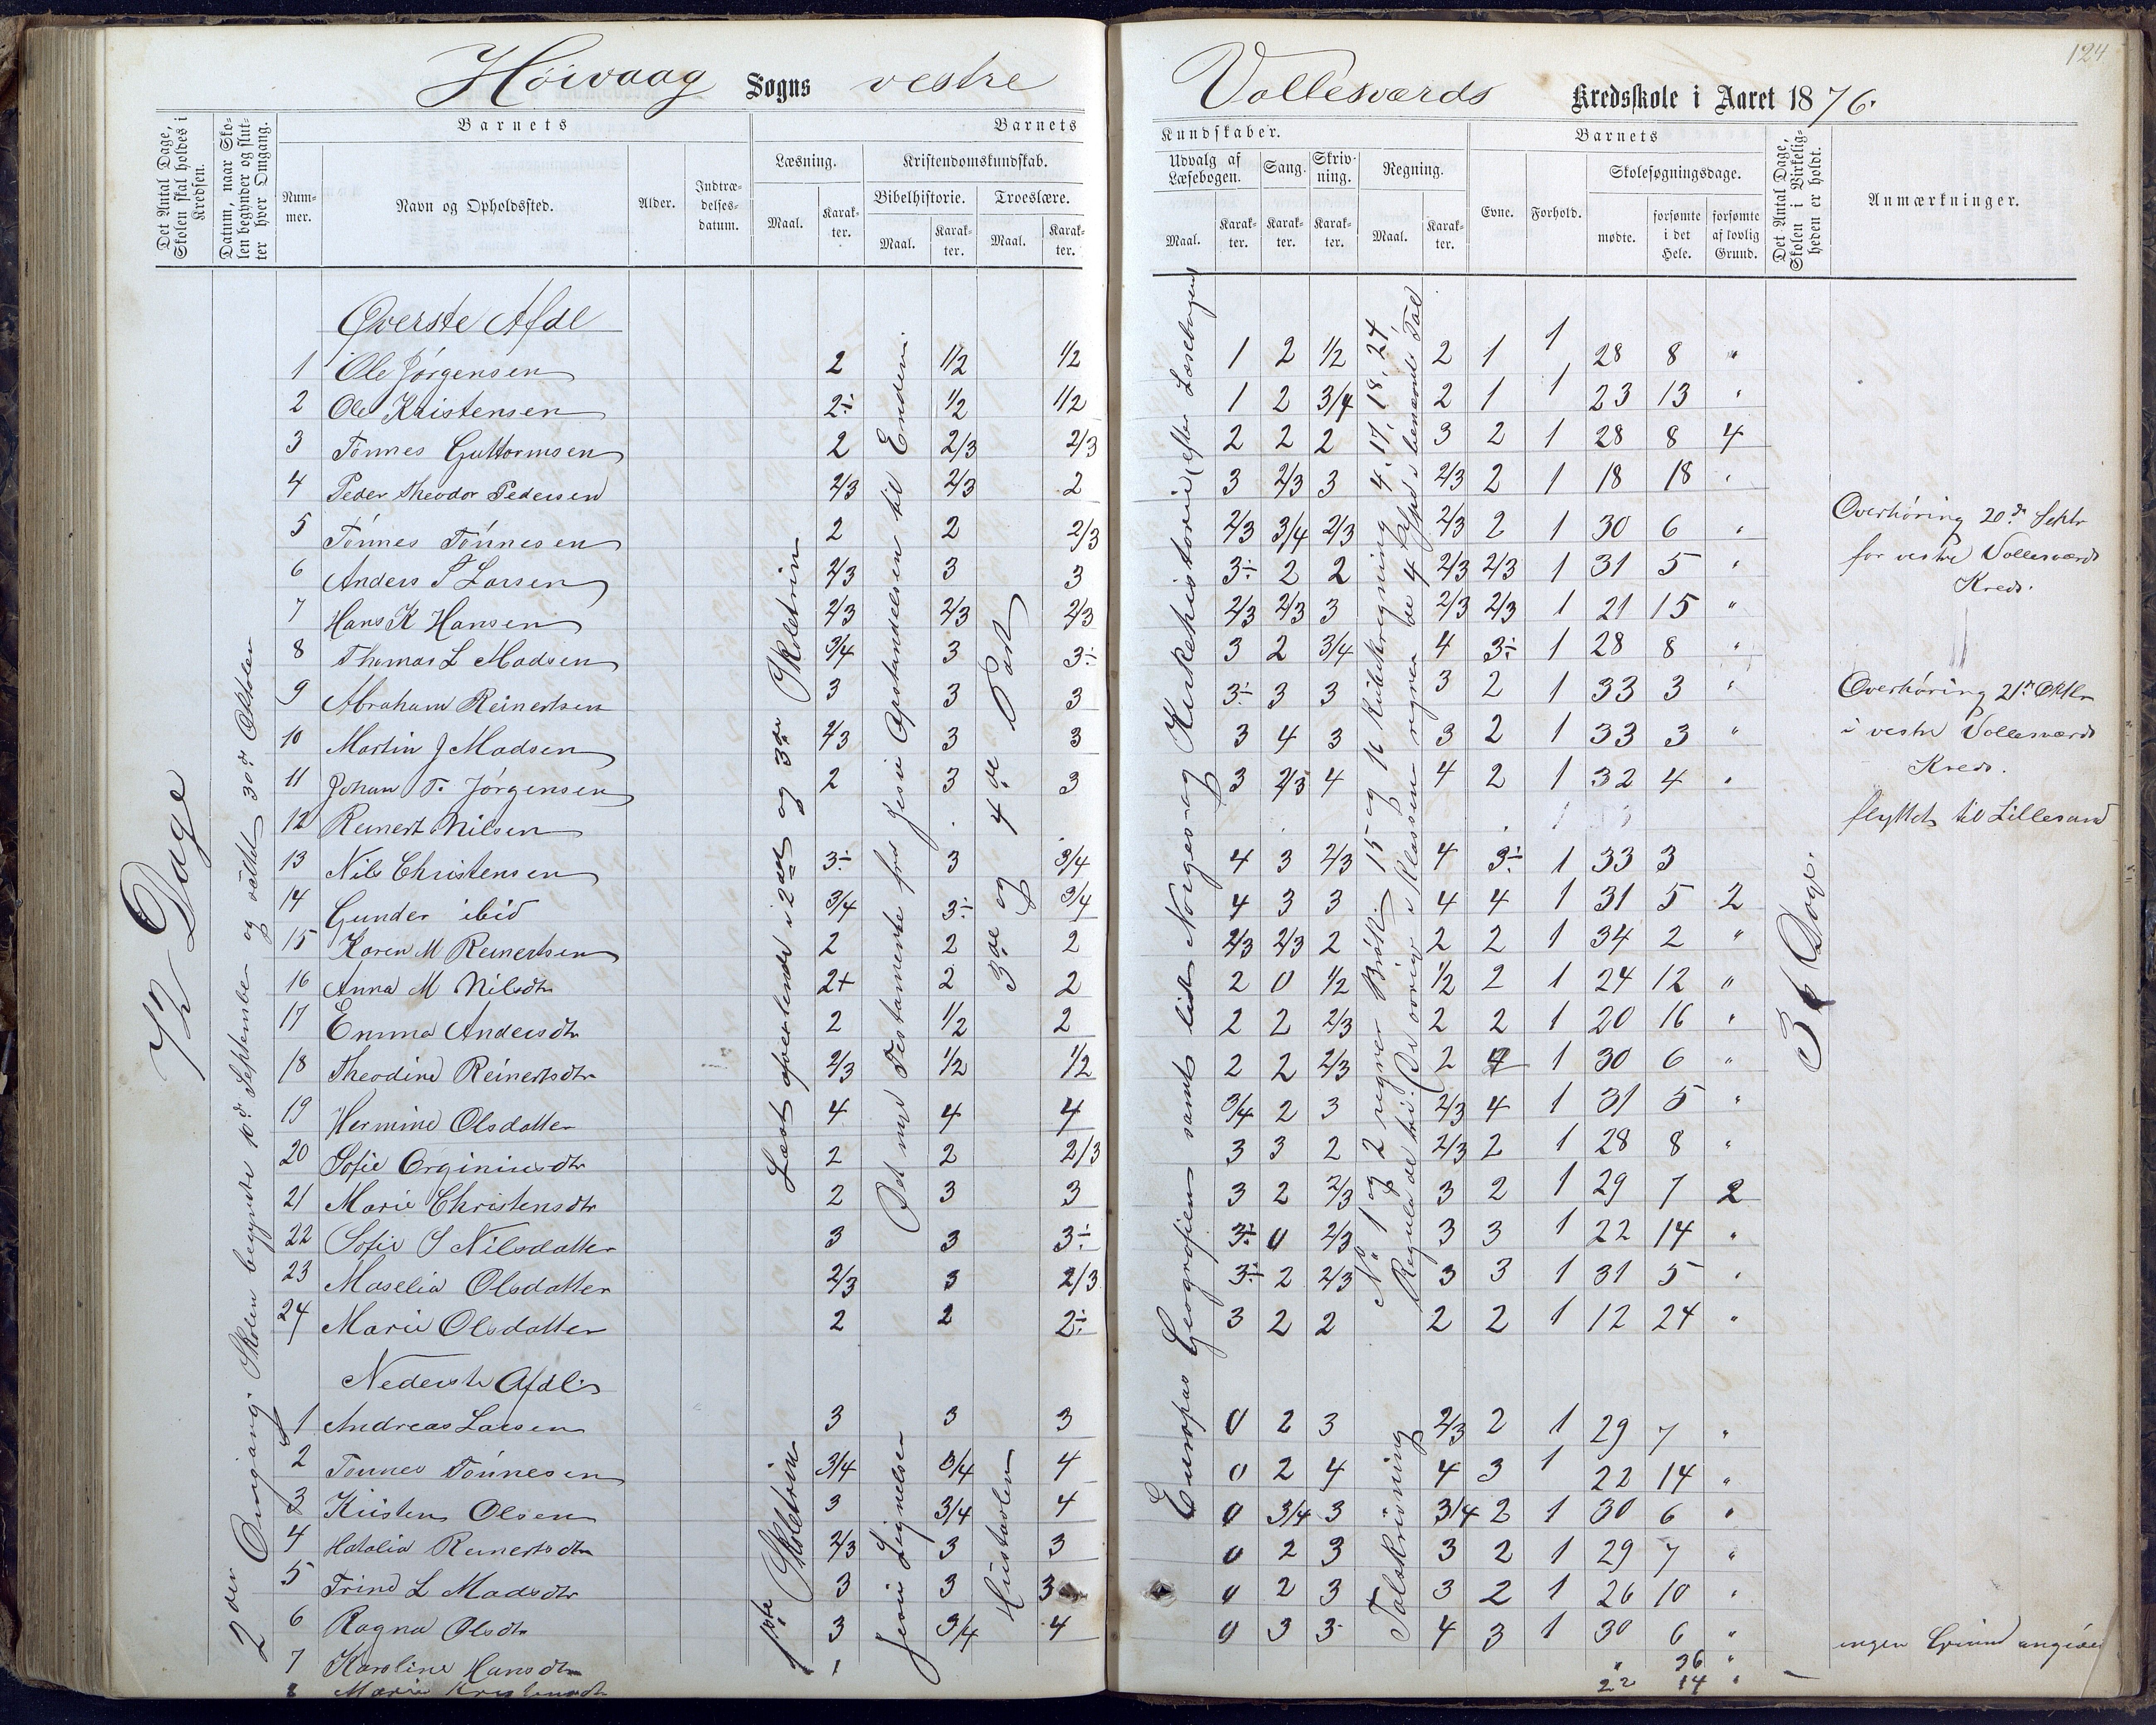 124
Høivaag Sogns vestre Vollesværds Kredsskole i Aaret 1876.
Det Antal Dage, Skolen skal holdes i Kredsen.
Datum, naar Skolen begynder og slutter hver Omgang.
Barnets
Nummer.
Navn og Opholdssted.
Alder.
Indtrædelsesdatum.
Barnets
Læsning.
Maal.
Karakter.
Kristendomskundskab.
Bibelhistorie.
Maal.
Karakter.
Troeslære.
Maal.
Karakter.
Kundskaber.
Udvalg af Læsebogen.
Maal.
Karakter.
Sang.
Karakter.
Skrivning.
Karakter.
Regning.
Maal.
Karakter.
Barnets
Evne.
Forhold.
Skolesøgningsdage.
mødte.
forsømte i det Hele.
forsømte af lovlig Grund.
Det Antal Dage, Skolen i Virkeligheden er holdt.
Anmærkninger.
72 Dage
2den Omgang. Skolen begyndte 10d September og sluttet 30d Oktober
Læst ovenstående i 2det og 3die Skoletrin
Det nye Testamente fra Jesu Opstandelsen til Enden
3die og 4de Part
Europas Geografien samt lidt Norges- og Kirkehistorie (efter Læsebogen)
No 1 og 2 regner Brøk. 15 og 16 Kubikregning 4. 17, 18, 24
Regula de tri. De øvrige i Klassen regner de 4 i benævnte Tal
36 Dage.
Øverste Afdl
1 Ole Jørgensen 2 1/2 1/2 1 2 1/2 2 1 1 28 8 "
2 Ole Kristensen 2÷ 1/2 1/2 1 2 3/4 2 1 1 23 13 "
3 Tønnes Guttormsen 2 2/3 2/3 2 2 2 3 2 1 28 8 4
4 Peder Theodor Pedersen 2/3 2/3 2 3 2/3 3 2/3 2 1 18 18 "
5 Tönnes Tönnesen 2 2 2/3 2/3 3/4 2/3 2/3 2 1 30 6 "
6 Anders T Larsen 2/3 3 3 3÷ 2 2 2/3 2/3 1 31 5 "
7 Hans K Hansen 2/3 2/3 2/3 2/3 2/3 3 2/3 2/3 1 21 15 "
8 Thomas L Madsen 3/4 3 3÷ 3 2 3/4 4 3÷ 1 28 8 "
9 Abraham Reinertsen 3 3 3 3÷ 3 3 3 2 1 33 3 "
10 Martin J Madsen 2/3 3 3 3 4 3 3 2 1 33 3 "
11 Johan T. Jörgensen 2 3 3 3 2/3 4 4 2 1 32 4 "
12 Reinert Nilsen
13 Nils Christensen 3÷ 3 3/4 4 3 2/3 4 3÷ 1 33 3
14 Gunder ibid 3/4 3÷ 3/4 4 3 3 4 4 1 31 5 2
15 Karen M Reinertsen 2 2 2 2/3 2/3 2 2 2 1 34 2 "
16 Anna M Nilsdtr 2+ 2 2 2 0 1/2 1/2 2 1 24 12 "
17 Emma Andersdtr 2 1/2 2 2 2 2/3 2 2 1 20 16 "
18 Theodine Reinertsdtr 2/3 1/2 1/2 2 2 2/3 2 4 1 30 6 "
19 Hermine Olsdatter 4 4 4 3/4 2 3 2/3 4 1 31 5 "
20 Sofie Orginiusdtr 2 2 2/3 3 3 2 2/3 2 1 28 8 "
21 Marie Christensdtr 2 3 3 3 2 2/3 3 2 1 29 7 2
22 Sofie S Nilsdatter 3 3 3÷ 3÷ 0 2/3 3 3 1 22 14 "
23 Maselia Olsdatter 2/3 3 2/3 3÷ 2 2/3 3 3 1 31 5 "
24 Marie Olsdatter 2 2 2÷ 3 2 2 2 2 1 12 24 "
Overhøring 20d Septr
for vestre Vollesværds
Kreds.
Overhøring 21d Oktbr
i vestre Vollesværds
Kreds.
flyttet til Lillesand
Nederste Afdl
1ste Skoletrin
Jesu Lignelser
Hustavlen
Talskrivning
1 Andreas Larsen 3 3 3 0 2 3 2/3 2 1 29 7 "
2 Tønnes Tönnesen 3/4 3/4 4 0 2 4 4 3 1 22 14 "
3 Kristen Olsen 3 3/4 4 0 3/4 3 3/4 2 1 30 6 "
4 Hatalia Reinertsdtr 2/3 3 3 0 2 3 3 2 1 29 7 "
5 Trine L Madsdtr 3 3 3 0 2 3 3 2 1 26 10 "
6 Ragna Olsdtr 3 3/4 4 0 3 3 4 3 1 30 6 "
7 Karoline Hansdtr " 36 " ingen Grund angivet
8 Marie Kristensdtr 22 14 "